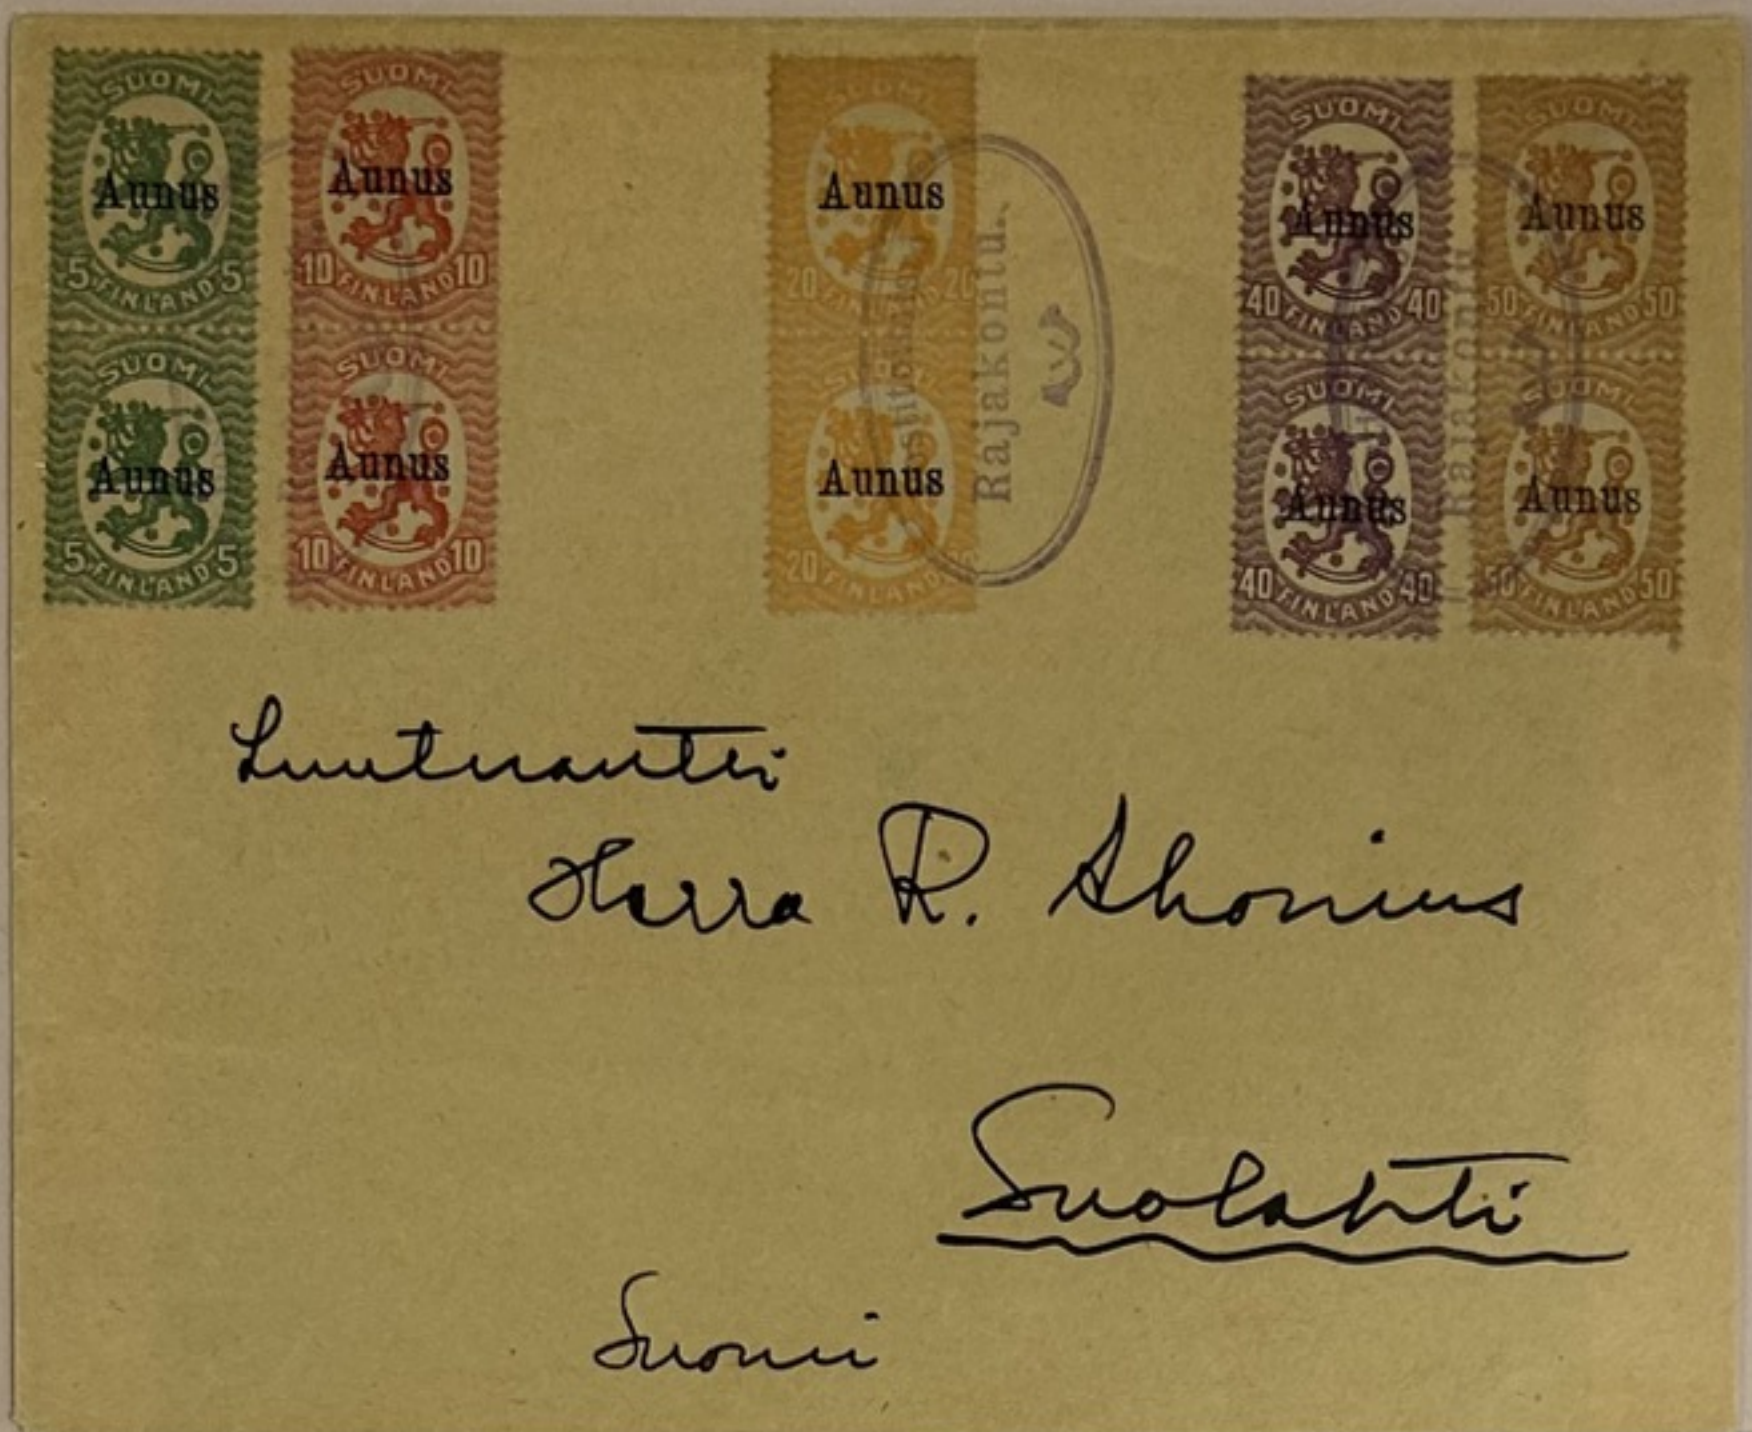 SUOMI
Aunus
5 FINLAND 5
SUOMI
Aunus
5 FINLAND 5
SUOMI
Aunus
10 FINLAND 10
SUOMI
Aunus
10 FINLAND 10
SUOMI
Aunus
20 FINLAND 20
SUOMI
Aunus
20 FINLAND 20
Rajakontu.
SUOMI
Aunus
40 FINLAND 40
SUOMI
Aunus
40 FINLAND 40
Rajakontu
SUOMI
Aunus
50 FINLAND 50
SUOMI
Aunus
50 FINLAND 50
Luutnantti
Herra R. Ahonius
Suolahti
Suomi